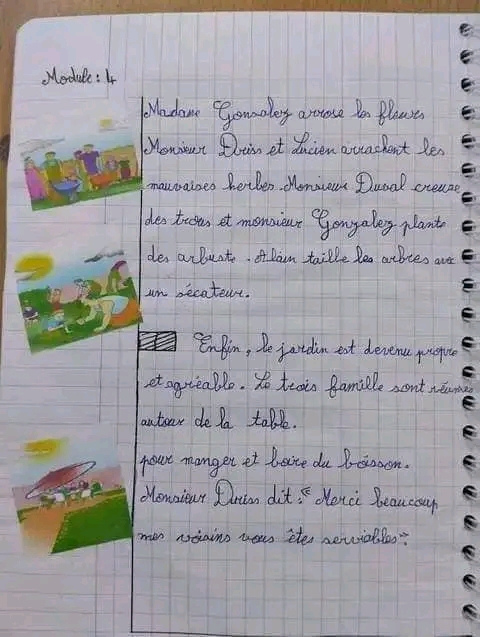 Module : 4
Madame Gonzalez arrose les fleurs
Monsieur Driss et Lucien arrachent les
mauvaises herbes. Monsieur Duval creuse
des trous et monsieur Gonzalez plante
des arbuste. Alain taille les arbres avec
un sécateur.
Enfin, le jardin est devenu propre
et agréable. Le trois famille sont réunies
autour de la table.
pour manger et boire du boisson.
Monsieur Driss dit : "Merci beaucoup
mes voisins vous êtes serviables".